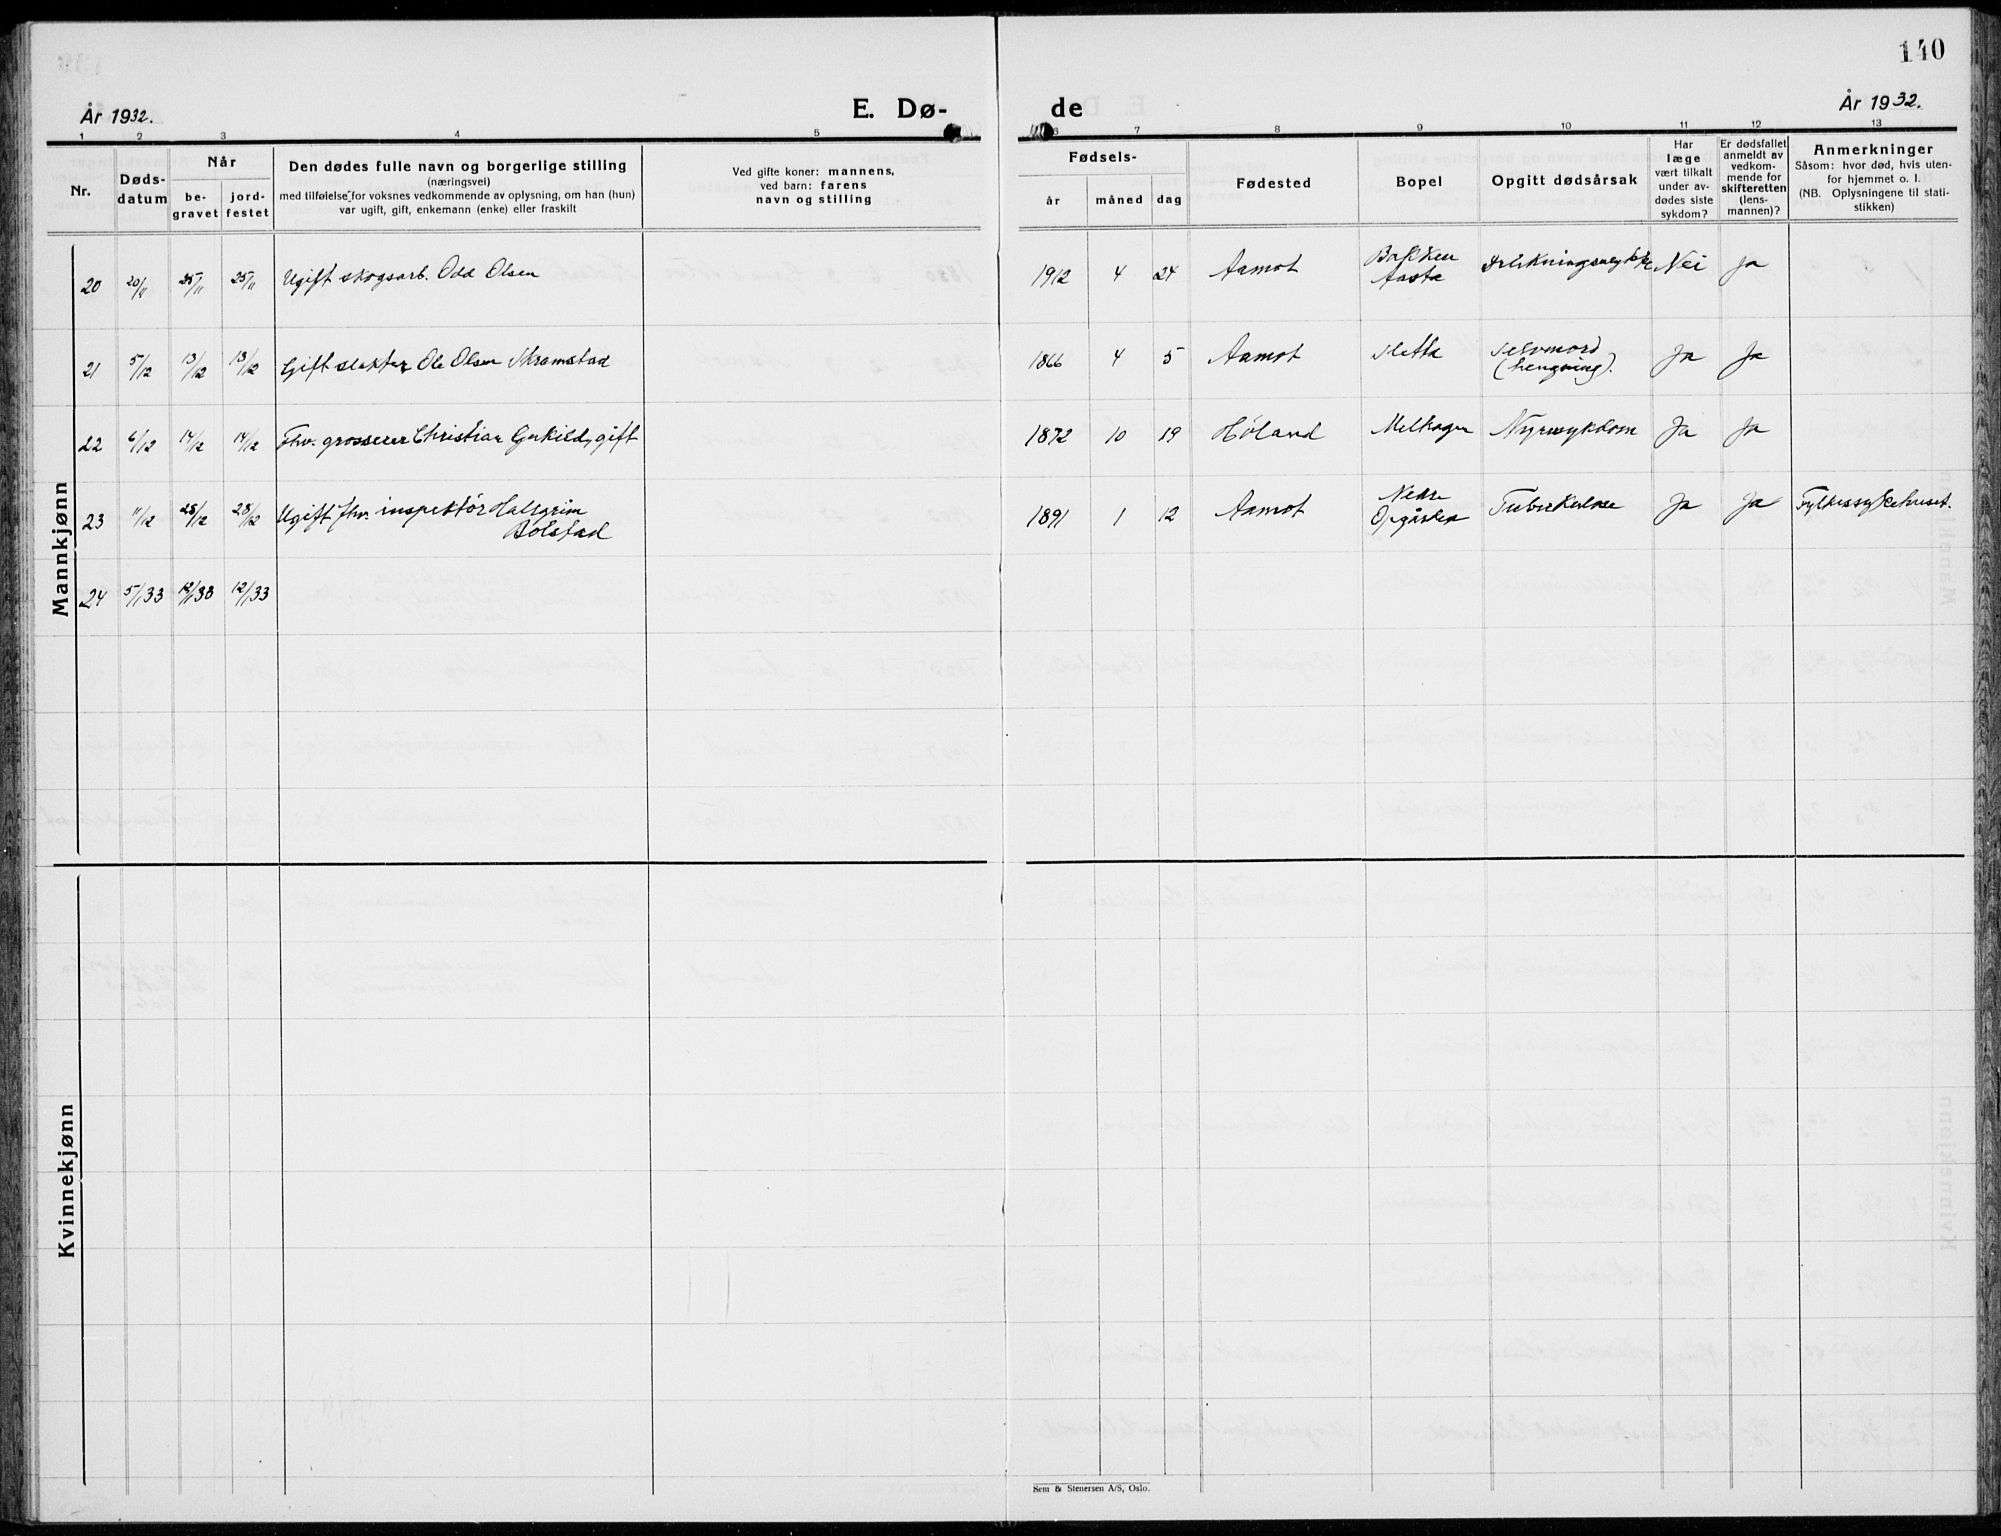 140
År 1932.
E. Dø-
de
År 1932.
1 2 3 4 5
6 7 8 9 10 11 12 13
Nr.
Døds-
datum
Når
be-
gravet
jord-
festet
Den dødes fulle navn og borgerlige stilling
(næringsvei)
med tilføielse for voksnes vedkommende av oplysning, om han (hun)
var ugift, gift, enkemann (enke) eller fraskilt
Ved gifte koner: mannens,
ved barn: farens
navn og stilling
Fødsels-
år måned dag
Fødested
Bopel
Opgitt dødsårsak
Har
læge
vært tilkalt
under av-
dødes siste
sykdom?
Er dødsfallet
anmeldt av
vedkom-
mende for
skifteretten
(lens-
mannen)?
Anmerkninger
Såsom: hvor død, hvis uten-
for hjemmet o. l.
(NB. Oplysningene til stati-
stikken)
Mannkjønn
20 20/11 25/11 25/11 Ugift skogsarb. Odd Olsen 1912 4 24 Aamot Bakken Aasta Nei Ja
21 5/12 13/12 13/12 Gift slakter Ole Olsen Skramstad 1866 4 5 Aamot Sletta Selvmord (hengning). Ja Ja
22 6/12 14/12 14/12 Fhv. grosserer Christian Gukild, gift 1872 10 19 Høland Melhagen Nyresykdom Ja Ja
23 11/12 28/12 28/12 Ugift fhv. inspektør Halgrim
Bolstad 1891 1 12 Aamot Nedre
Opgården Tuberkulose Ja Ja Fylkessykehuset.
24 5/1 33 12/1 33 12/1 33
Kvinnekjønn
Sem & Stenersen A/S, Oslo.